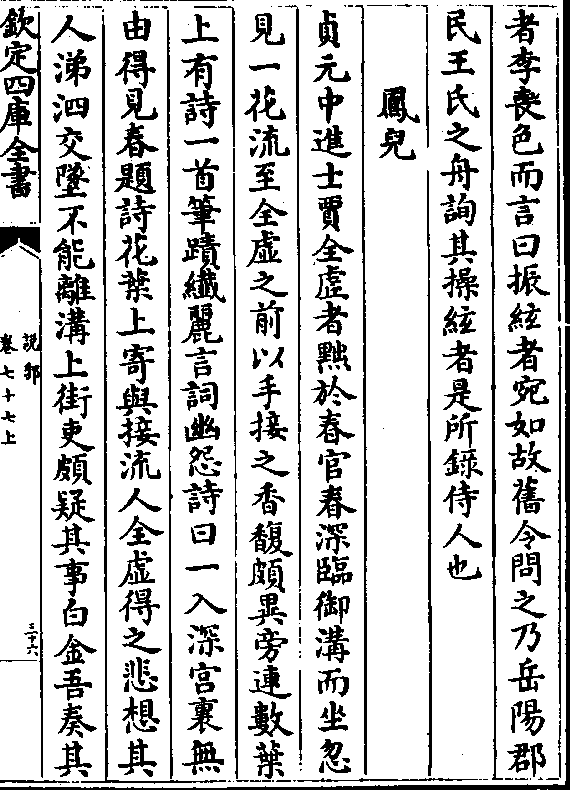 者李喪色而言曰振絃者宛如故舊令問之乃岳陽郡
民王氏之舟詢其操絃者是所錄侍人也
鳳兒
貞元中進士賈全虛者黜於春官春深臨御溝而坐忽
見一花流至全虛之前以手接之香馥頗異旁連數葉
上有詩一首筆蹟纖麗言詞幽怨詩曰一入深宮裏無
由得見春題詩花葉上寄與接流人全虛得之悲想其
人涕泗交墜不能離溝上街吏頗疑其事白金吾奏其
欽定四庫全書
說郛
卷七十七上
三十六